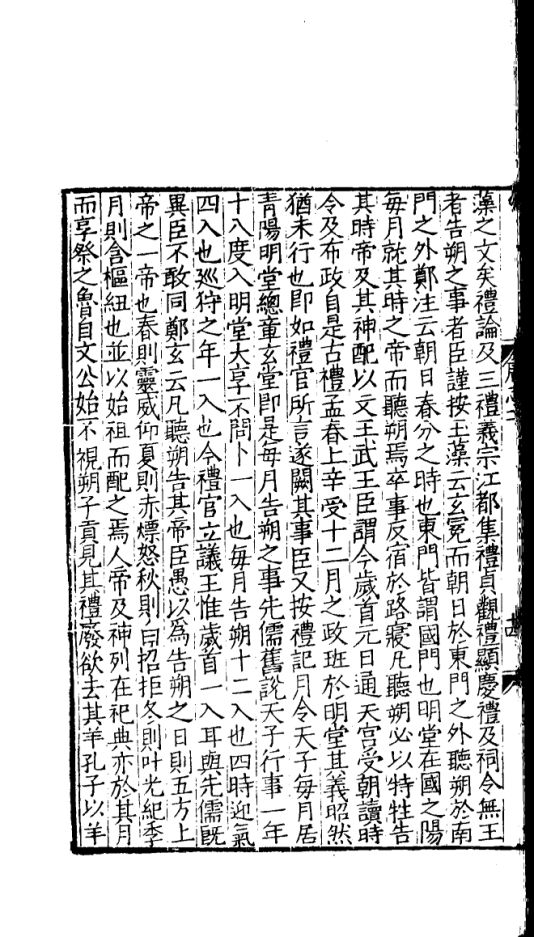 藻之文矣禮論及三禮義宗江都集禮貞觀禮顯慶禮及祠令無王
者告朔之事者臣謹按玉藻云玄冕而朝日於東門之外聽朔於南
門之外鄭注云朝日春分之時也東門皆謂國門也明堂在國之陽
每月就其時之帝而聽朔焉卒事反宿於路寢凡聽朔必以特牲告
其時帝及其神配以文王武王臣謂今歲首元日通天宮受朝讀時
令及布政自是古禮孟春上辛受十二月之政班於明堂其義昭然
猶未行也即如禮官所言遂闕其事臣又按禮記月令天子每月居
青陽明堂總章玄堂即是每月告朔之事先儒舊說天子行事一年
十八度入明堂大享不問卜一入也每月告朔十二入也四時迎氣
四入也巡狩之年一入也今禮官立議王惟歲首一入耳與先儒旣
異臣不敢同鄭玄云凡聽朔告其帝臣愚以為告朔之日則五方上
帝之一帝也春則靈威仰夏則赤熛怒秋則白招拒冬則叶光紀季
月則含樞紐也並以始祖而配之焉人帝及神列在祀典亦於其月
而享祭之魯自文公始不視朔子貢見其禮廢欲去其羊孔子以羊